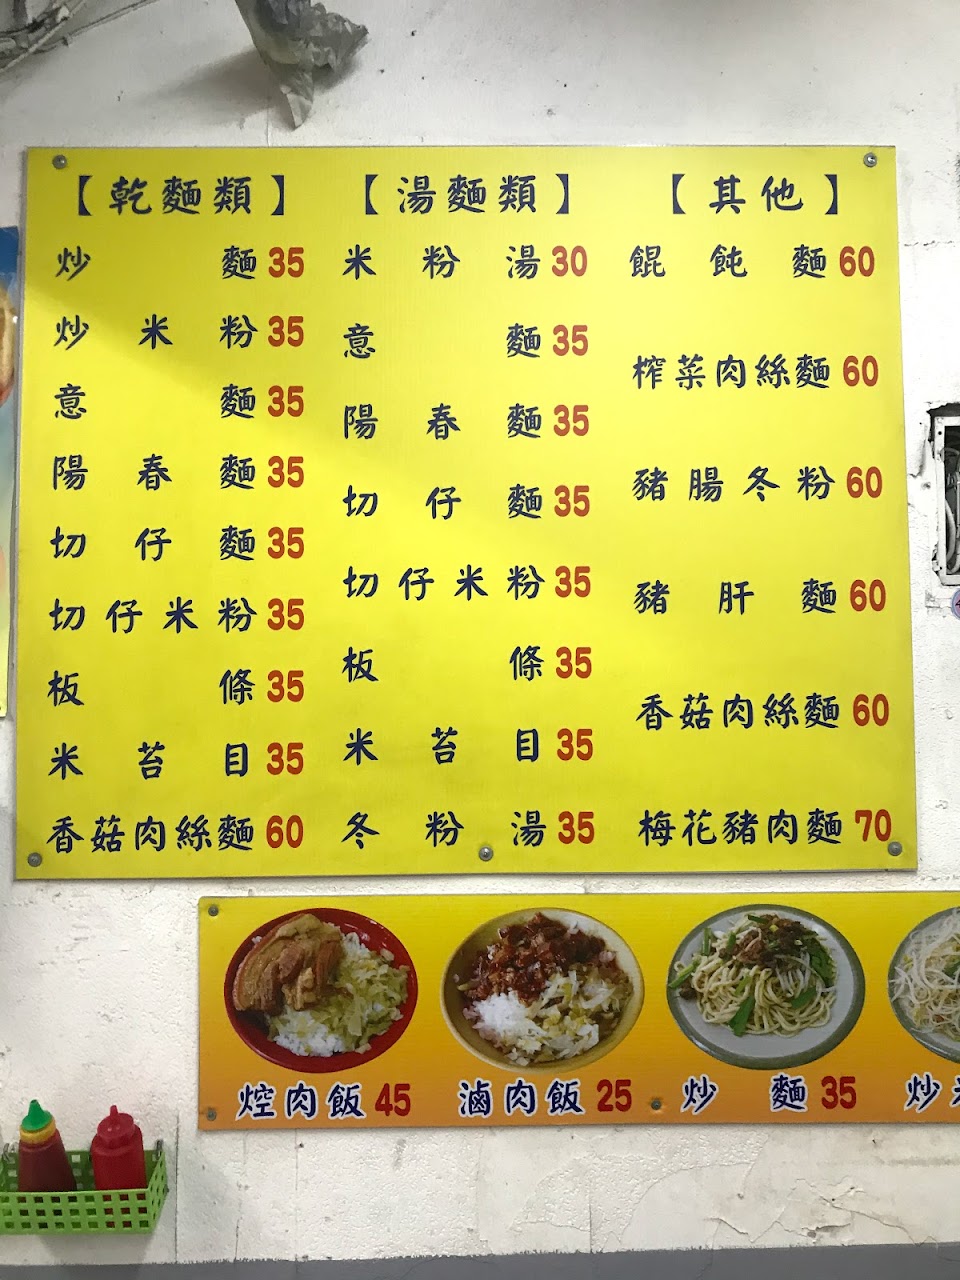 【乾麵類】
炒麵 35
炒米粉 35
意麵 35
陽春麵 35
切仔麵 35
切仔米粉 35
板條 35
米苔目 35
香菇肉絲麵 60
【湯麵類】
米粉湯 30
意麵 35
陽春麵 35
切仔麵 35
切仔米粉 35
板條 35
米苔目 35
冬粉湯 35
【其他】
餛飩麵 60
榨菜肉絲麵 60
豬腸冬粉 60
豬肝麵 60
香菇肉絲麵 60
梅花豬肉麵 70
焢肉飯 45
滷肉飯 25
炒麵 35
炒